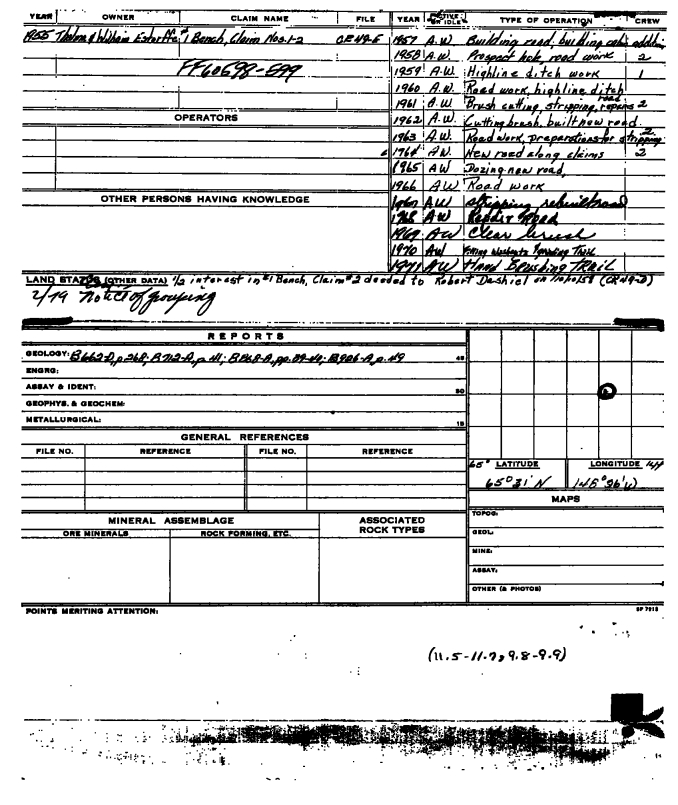 YEAR OWNER CLAIM NAME FILE
1955 Thelma & William #1 Bench, Claim Nos. 1-2 CR 49-5
FF60598-599
OPERATORS
OTHER PERSONS HAVING KNOWLEDGE
YEAR ACTIVE OR IDLE TYPE OF OPERATION CREW
1957 A.W. Building road, building cabin addition
1958 A.W. Prospect hole, road work 2
1959 A.W. Highline ditch work 1
1960 A.W. Road work, highline ditch
1961 A.W. Brush cutting, stripping, road repairs 2
1962 A.W. Cutting brush, built new road.
1963 A.W. Road work, preparations for stripping 2
1964 A.W. New road along claims 2
1965 AW Dozing new road,
1966 AW Road work
1967 AW stripping rebuilt road
1968 AW Road
1969 AW Clear brush
1970 AW Trail
1971 AW Hand Brushing TRAIL
LAND STATUS (OTHER DATA) 1/2 interest in #1 Bench, Claim #2 deeded to Robert Dashiel on (CR 49-D)
2/79 Notice of grouping
REPORTS
GEOLOGY: B662-D, p. 268; B712-A, p. 41; B868-A, pp. 39-40; B906-A, p. 49 45
ENGRG:
ASSAY & IDENT: 30
GEOPHYS. & GEOCHEM:
METALLURGICAL: 15
GENERAL REFERENCES
FILE NO. REFERENCE FILE NO. REFERENCE
65° LATITUDE LONGITUDE
65°31'N
MAPS
TOPOG:
GEOL:
MINE:
ASSAY:
OTHER (& PHOTOS)
MINERAL ASSEMBLAGE
ORE MINERALS ROCK FORMING, ETC.
ASSOCIATED ROCK TYPES
POINTS MERITING ATTENTION:
SP 7915
(11.5-11.7, 9.8-9.9)